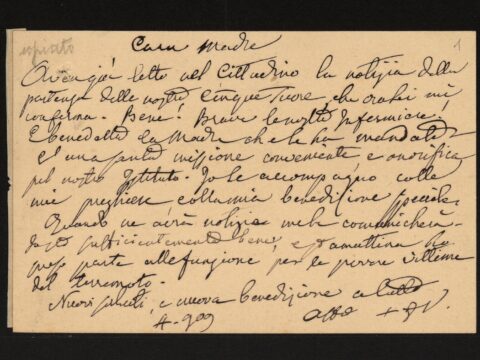 copiato
1
Cara Madre
Avea già letto nel Cittadino la notizia della
partenza delle nostre cinque Suore, che ora Ella mi
conferma. Bene! Brave le nostre Infermiere!
E benedetta la Madre che le ha mandate
È una santa missione conveniente, e onorifica
pel nostro Istituto. Io le accompagno colle
mie preghiere, colla mia benedizione speciale.
Quando ne avrà notizie me le comunicherà.
Io sto sufficientemente bene, e stamattina ho
preso parte alla funzione per le povere vittime
del terremoto.
Nuovi auguri, e nuova benedizione a tutte
4-909
Affo +